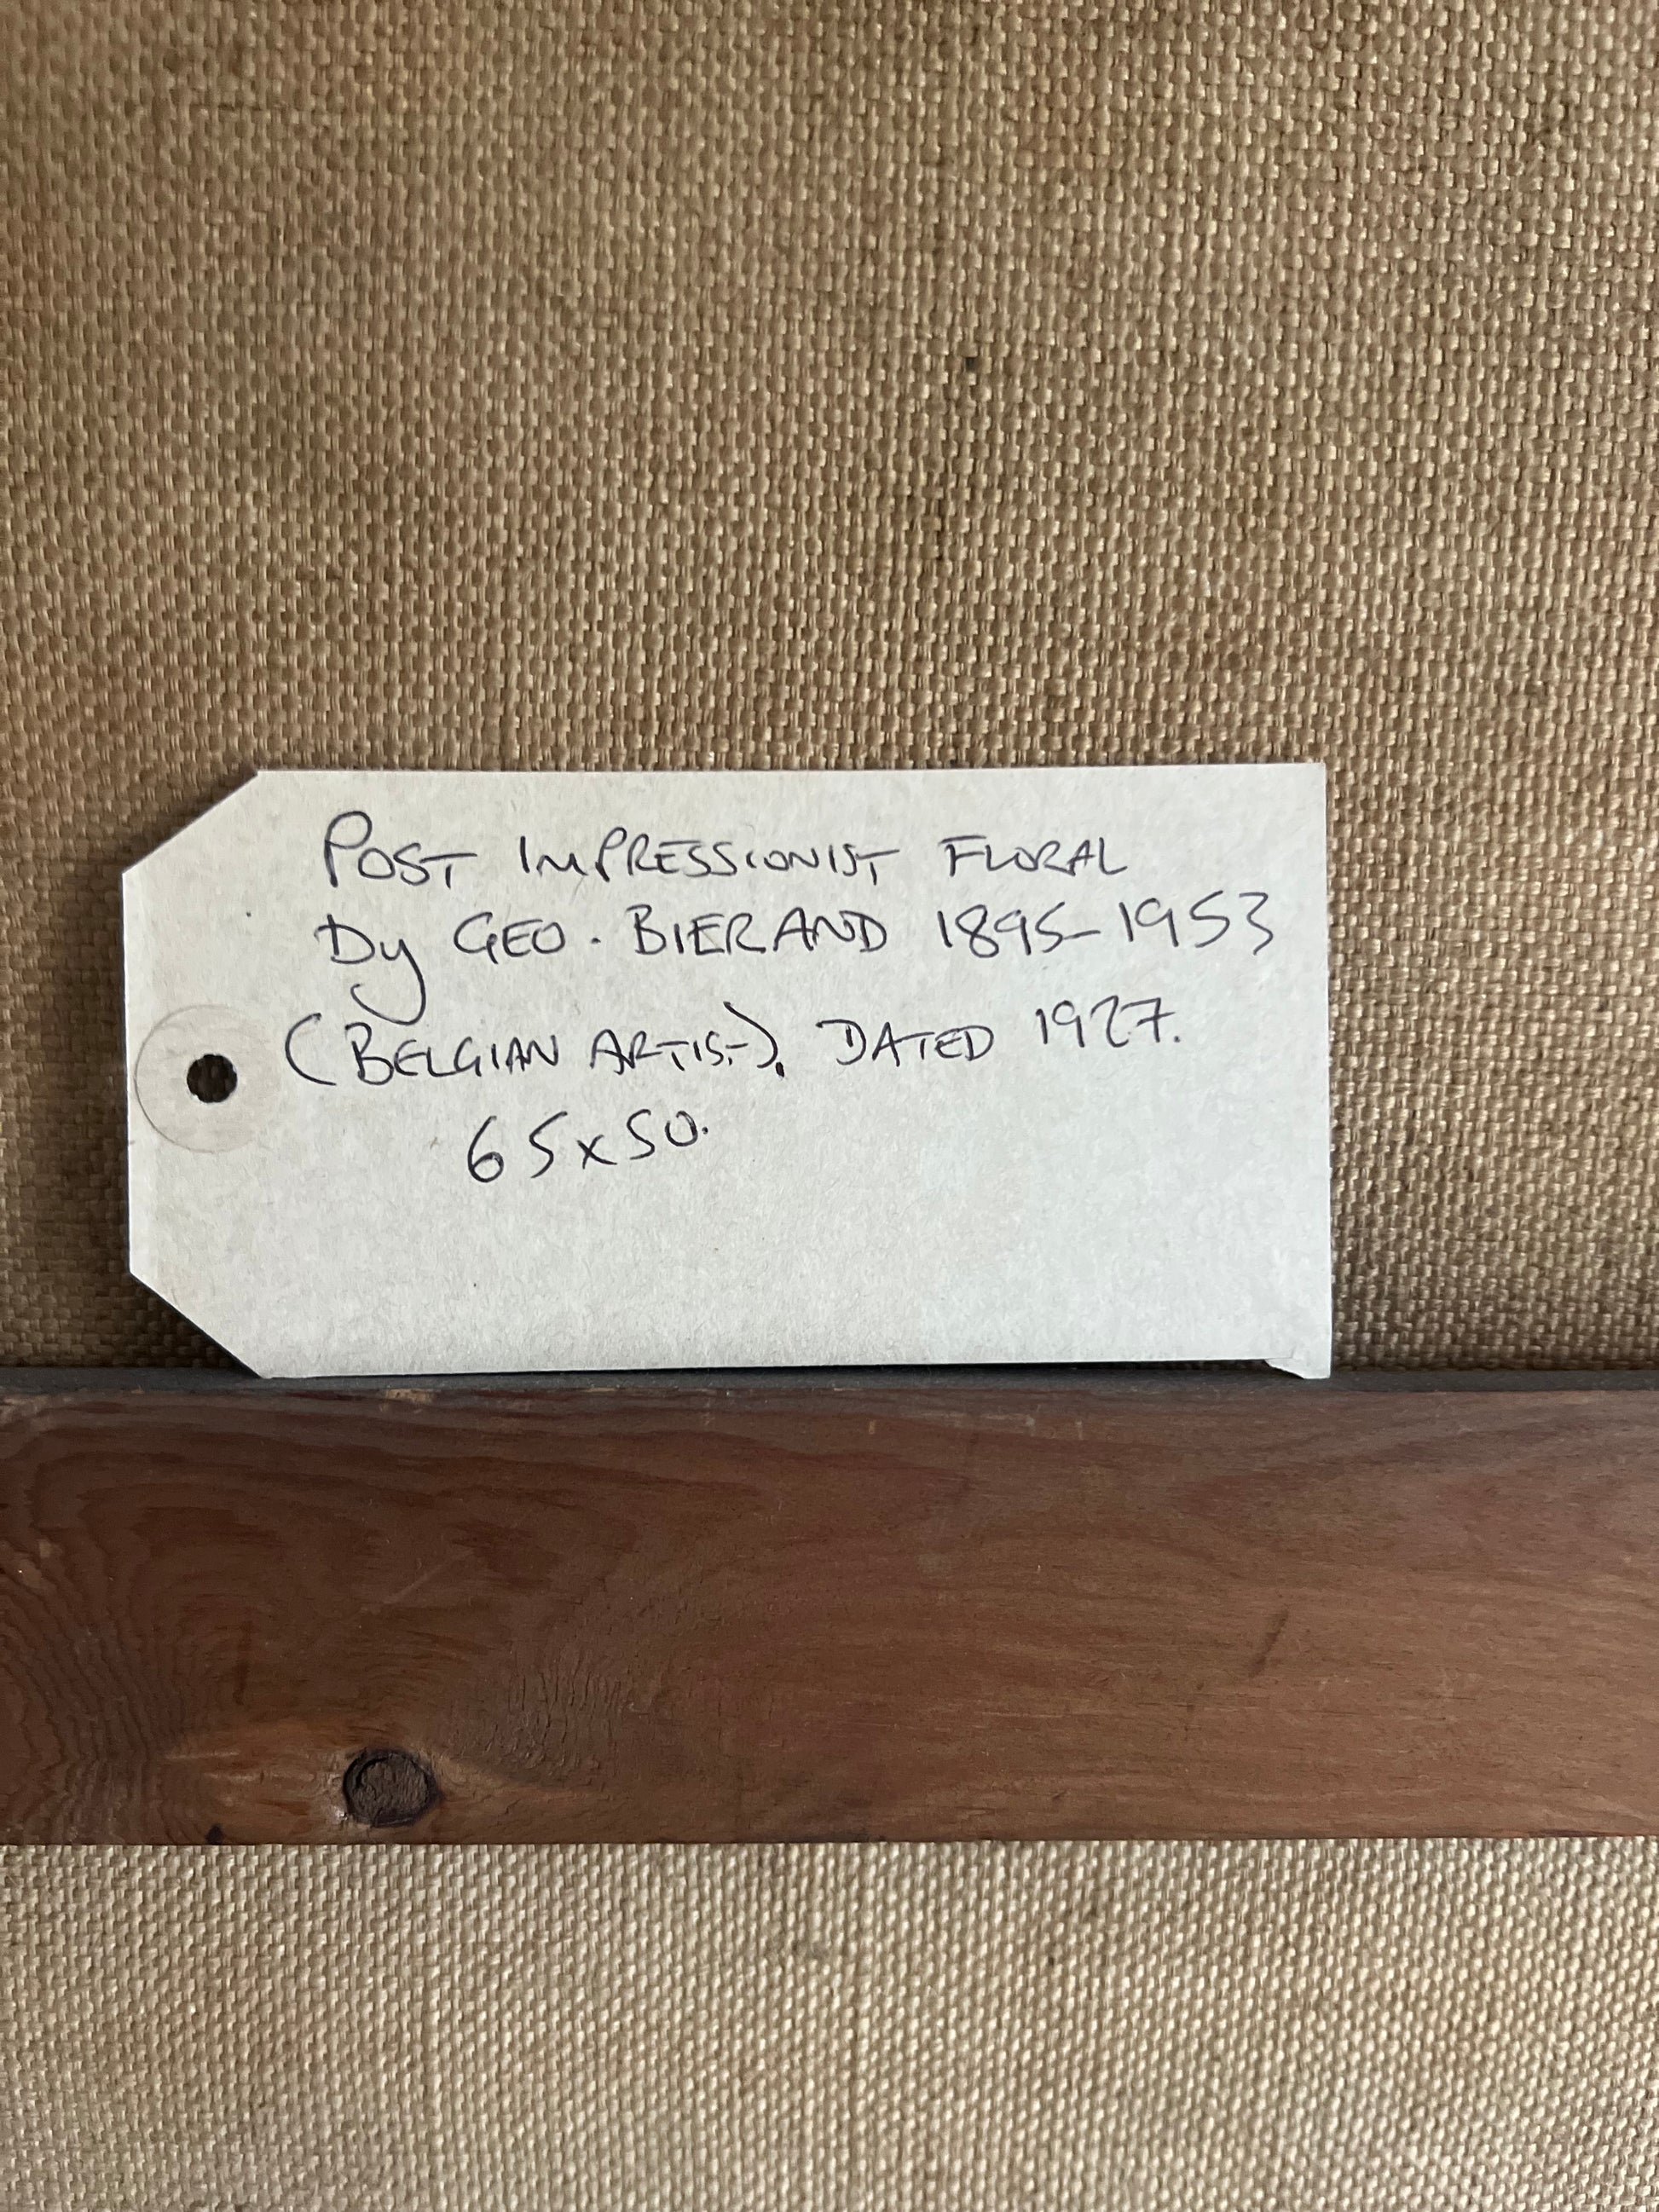 POST IMPRESSIONIST FLORAL
By GEO. BIERAND 1895-1953
(BELGIAN ARTIST). DATED 1927.
65x50.